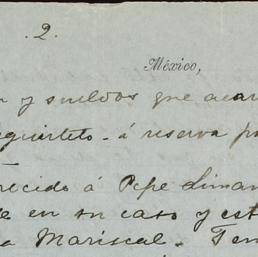 .2.
México,
y sueldos que acar
á reserva po
recido á Pepe Liman
e en su caso y est
a Mariscal. Ten